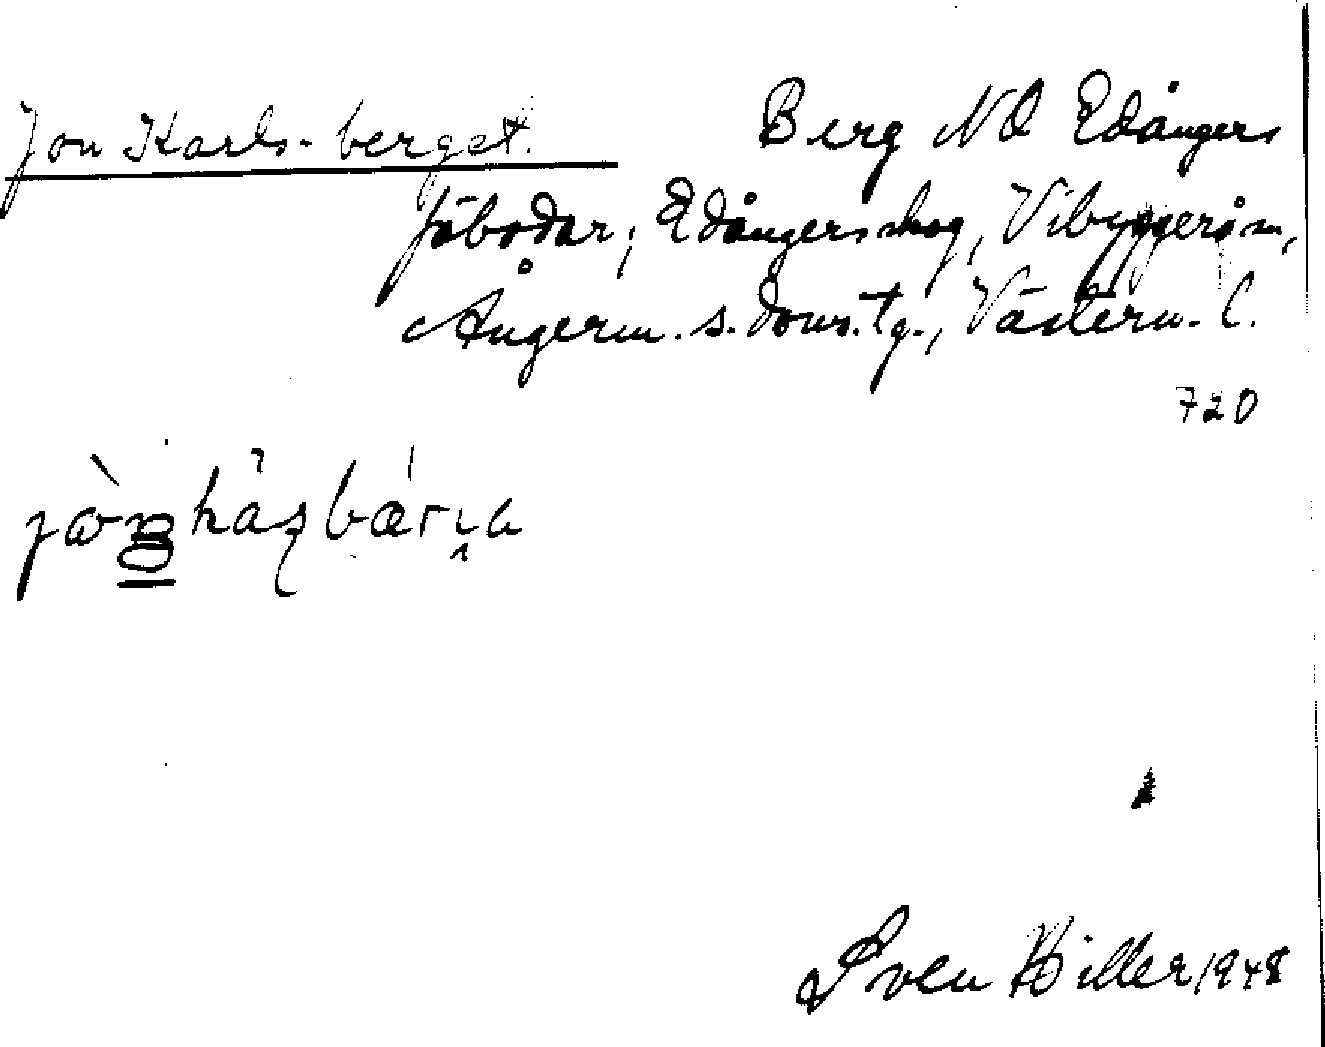 Jon Karls-berget. Berg NO Edångers
fäbodar, Edångersskog, Vibyggerå sn,
Ångerm. s. doms. tg., Västern. l.
720
Sven Hiller 1948